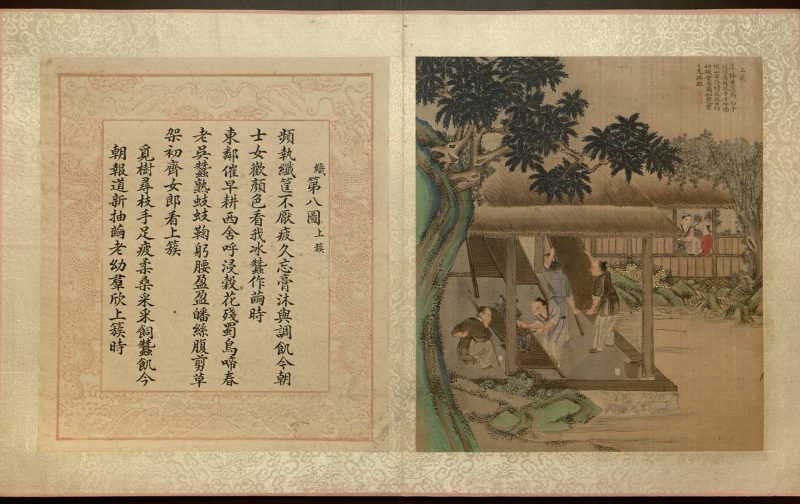 織第八圖 上簇
頻執纖筐不厭疲久忘膏沐與調飢今朝
士女歡顏色看我冰蠶作繭時
東鄰催早耕西舍呼浸穀花殘蜀鳥啼春
老吳蠶熟蚑蚑鞠躬腰盈盈皤絲腹剪草
架初齊女郎看上簇
覓樹尋枝手足疲柔桑采采飼蠶飢今
朝報道新抽繭老幼羣欣上簇時
上簇